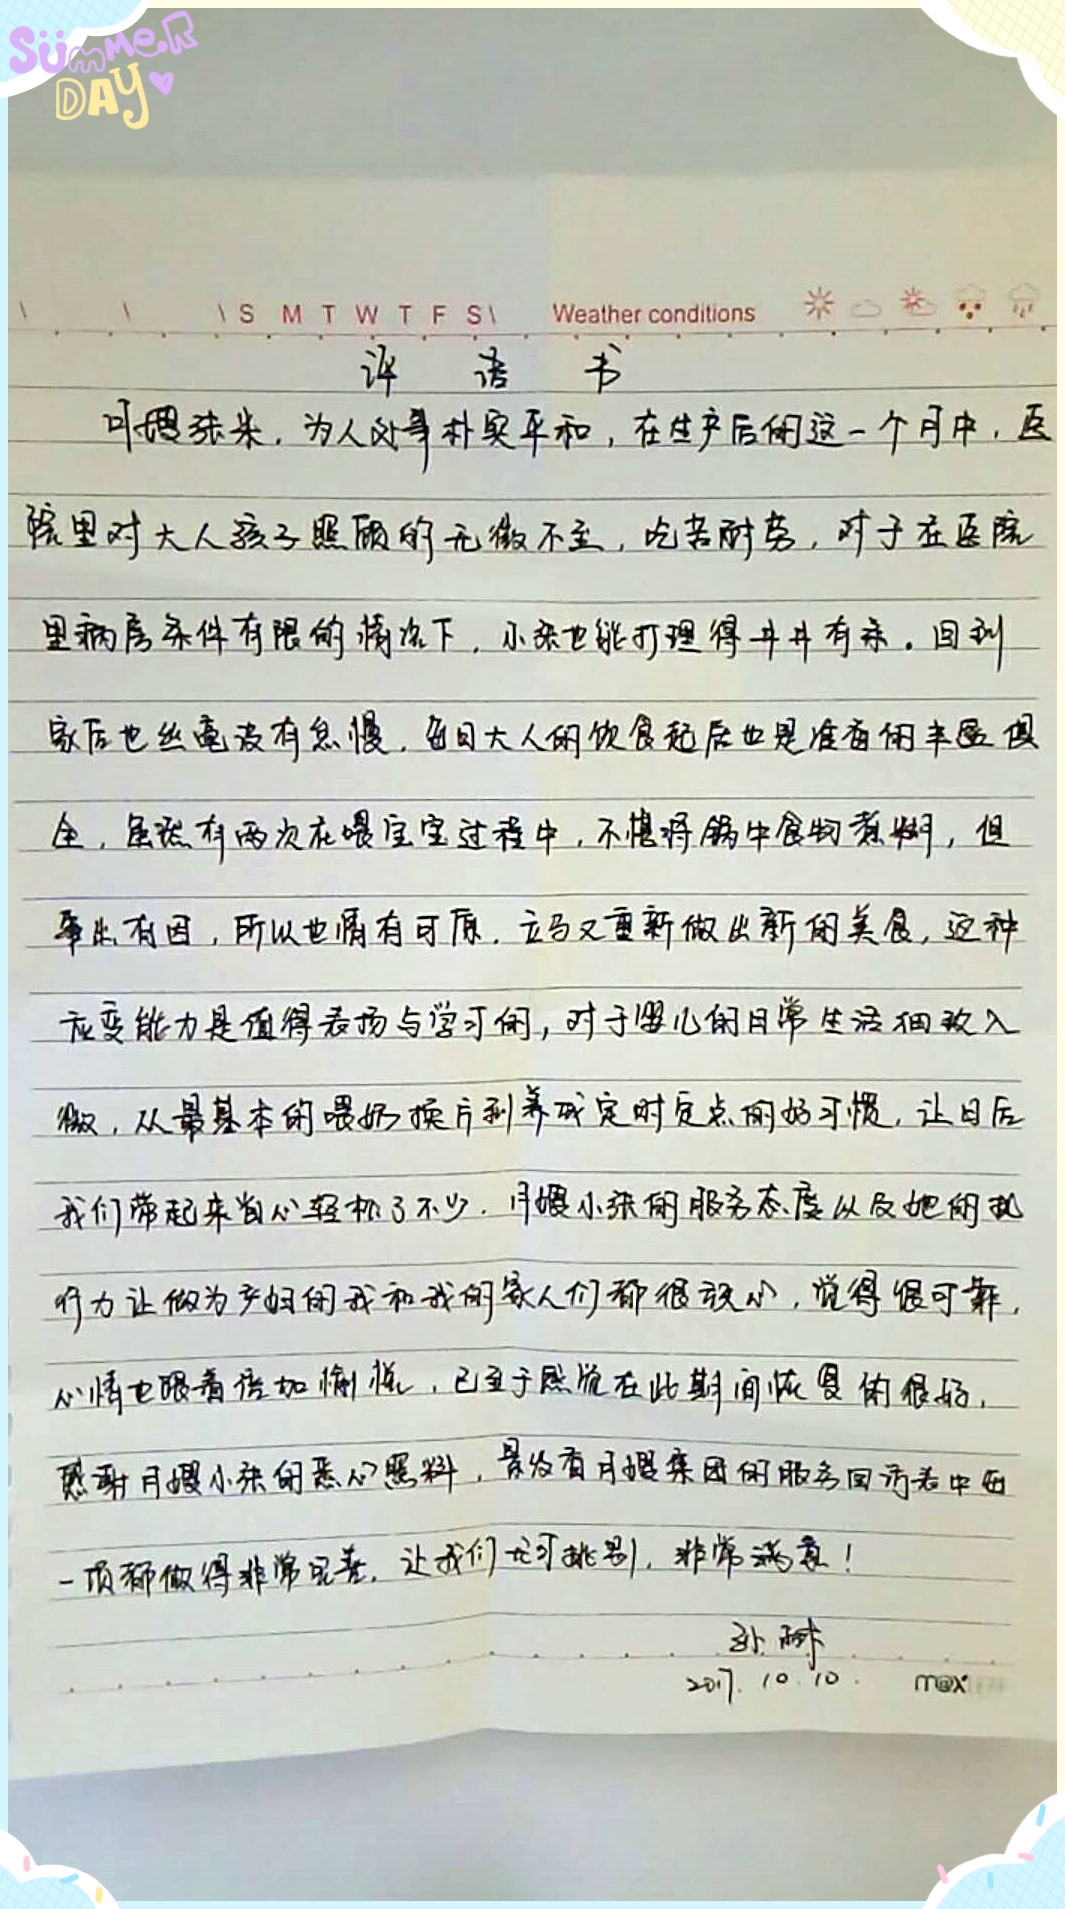 SUMMER
DAY
S M T W T F S Weather conditions
评 语 书
月嫂张米，为人处事朴实平和，在生产后的这一个月中，医
院里对大人孩子照顾的无微不至，吃苦耐劳，对于在医院
里病房条件有限的情况下，小张也能打理得井井有条。回到
家后也丝毫没有怠慢，每日大人的饮食起居也是准备的丰盛俱
全，虽然有两次在喂宝宝过程中，不慎将锅中食物煮糊，但
事出有因，所以也情有可原，立马又重新做出新的美食，这种
应变能力是值得表扬与学习的，对于婴儿的日常生活细致入
微，从最基本的喂奶换片到养成定时定点的好习惯，让日后
我们带起来省心轻松了不少，月嫂小张的服务态度以及她的执
行力让做为产妇的我和我的家人们都很放心，觉得很可靠，
心情也跟着倍加愉悦，已至于感觉在此期间恢复的很好，
感谢月嫂小张的悉心照料，最后看月嫂集团的服务回访表中每
一项都做得非常完善，让我们无可挑剔，非常满意！
孙琳
2017.10.10.
m@x